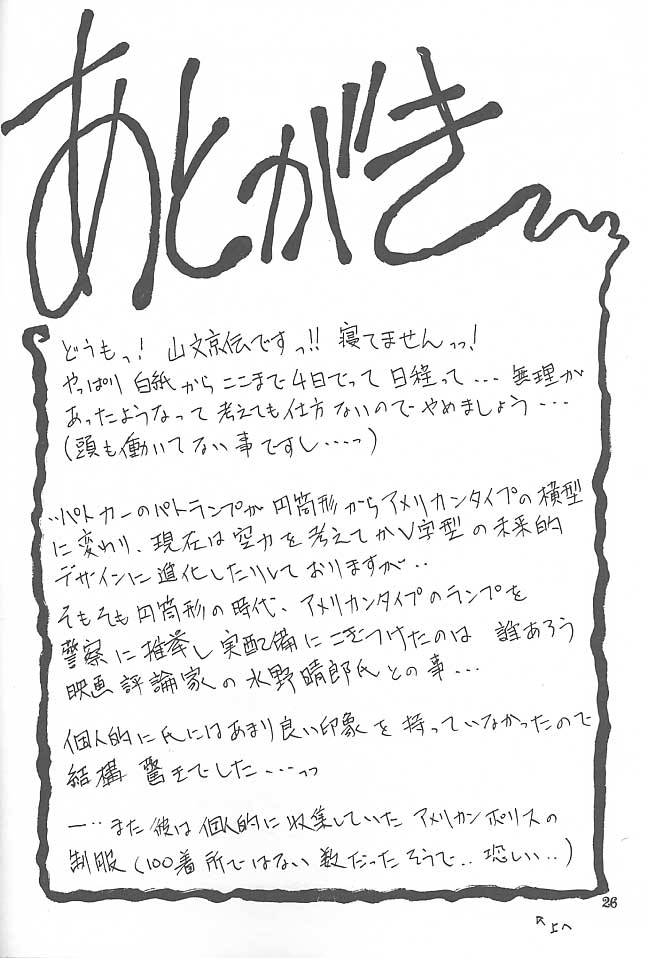 あとがき
どうもっ! 山文京伝ですっ!! 寝てませんっっ!
やっぱり 白紙から ここまで 4日でって 日程って... 無理が
あったようなって 考えても 仕方ないので やめましょう...
(頭も働いてない事ですし...っ)
‥パトカーのパトランプが 円筒形から アメリカンタイプの 横型
に変わり、現在は 空力を 考えてか V字型の 未来的
デザインに 進化したりしておりますが‥
そもそも 円筒形の 時代、アメリカンタイプのランプを
警察に 推挙し 実配備に こぎつけたのは 誰あろう
映画評論家の 水野晴郎氏との事...
個人的に 氏には あまり 良い 印象を 持っていなかったので
結構 驚きでした...っっ
ー‥また 彼は 個人的に 収集していた アメリカンポリスの
制服 (100着所ではない 数だったそうで‥ 恐しい‥)
26
↖上へ